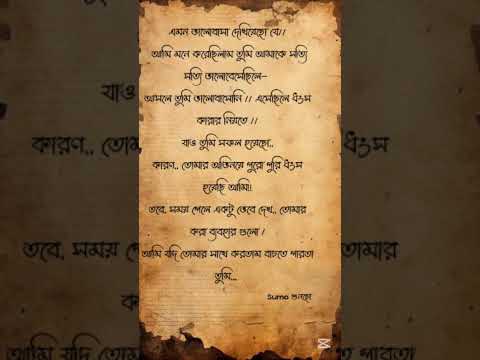 এমন ভালোবাসা দেখিয়েছো যে।।
আমি মনে করেছিলাম তুমি আমাকে সত্যি
সত্যি ভালোবেসেছিলে–
আসলে তুমি ভালোবাসোনি ।। এসেছিলে ধ্বংস
কারার নিয়তে ।।
যাও তুমি সফল হয়েছো..
কারণ.. তোমার অভিনয়ে পুরো পুরি ধ্বংস
হয়েছি আমি।।
তবে. সময় পেলে একটু ভেবে দেখ.. তোমার
করা ব্যবহার গুলো ।
আমি যদি তোমার সাথে করতাম বাচতে পারতা
তুমি...
Suma